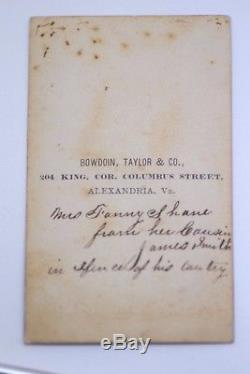 BOWDOIN, TAYLOR & CO.,
204 KING, COR. COLUMBUS STREET,
ALEXANDRIA, Va.
Mrs Fanny Shane
from her Cousin
James Smith
in of his